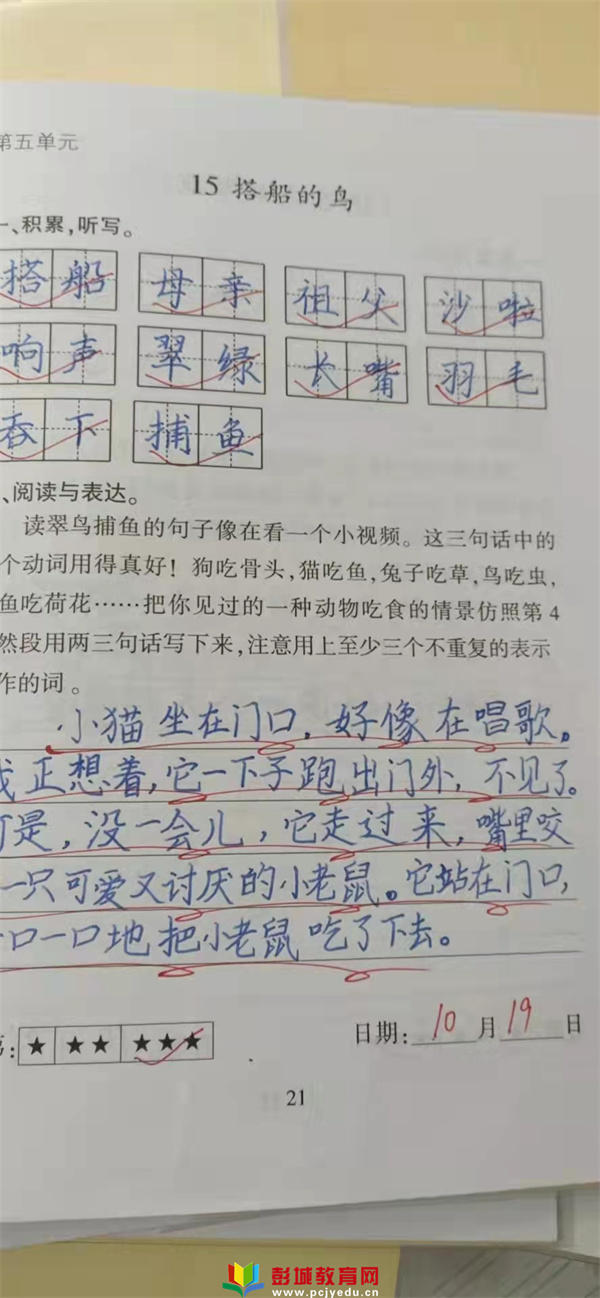 第五单元
15 搭船的鸟
一、积累,听写。
搭船 母亲 祖父 沙啦
响声 翠绿 长嘴 羽毛
吞下 捕鱼
、阅读与表达。
读翠鸟捕鱼的句子像在看一个小视频。这三句话中的
个动词用得真好！狗吃骨头,猫吃鱼,兔子吃草,鸟吃虫,
鱼吃荷花……把你见过的一种动物吃食的情景仿照第 4
然段用两三句话写下来,注意用上至少三个不重复的表示
作的词。
小猫坐在门口,好像在唱歌。
我正想着,它一下子跑出门外,不见了。
可是,没一会儿,它走过来,嘴里咬
一只可爱又讨厌的小老鼠。它站在门口,
一口一口地把小老鼠吃了下去。
★ ★★ ★★★ 日期:10月19日
21
彭城教育网
www.pcjyedu.cn